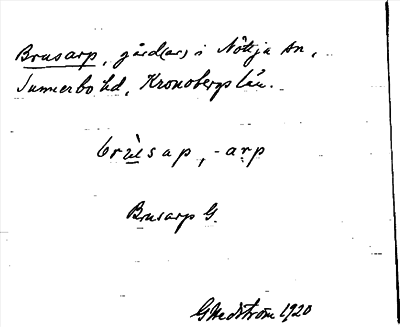 Brusarp, gård(ar) i Nöttja sn,
Sunnerbo hd, Kronobergs län.
brùsap, -arp
Brusarp G.
GHedström 1920